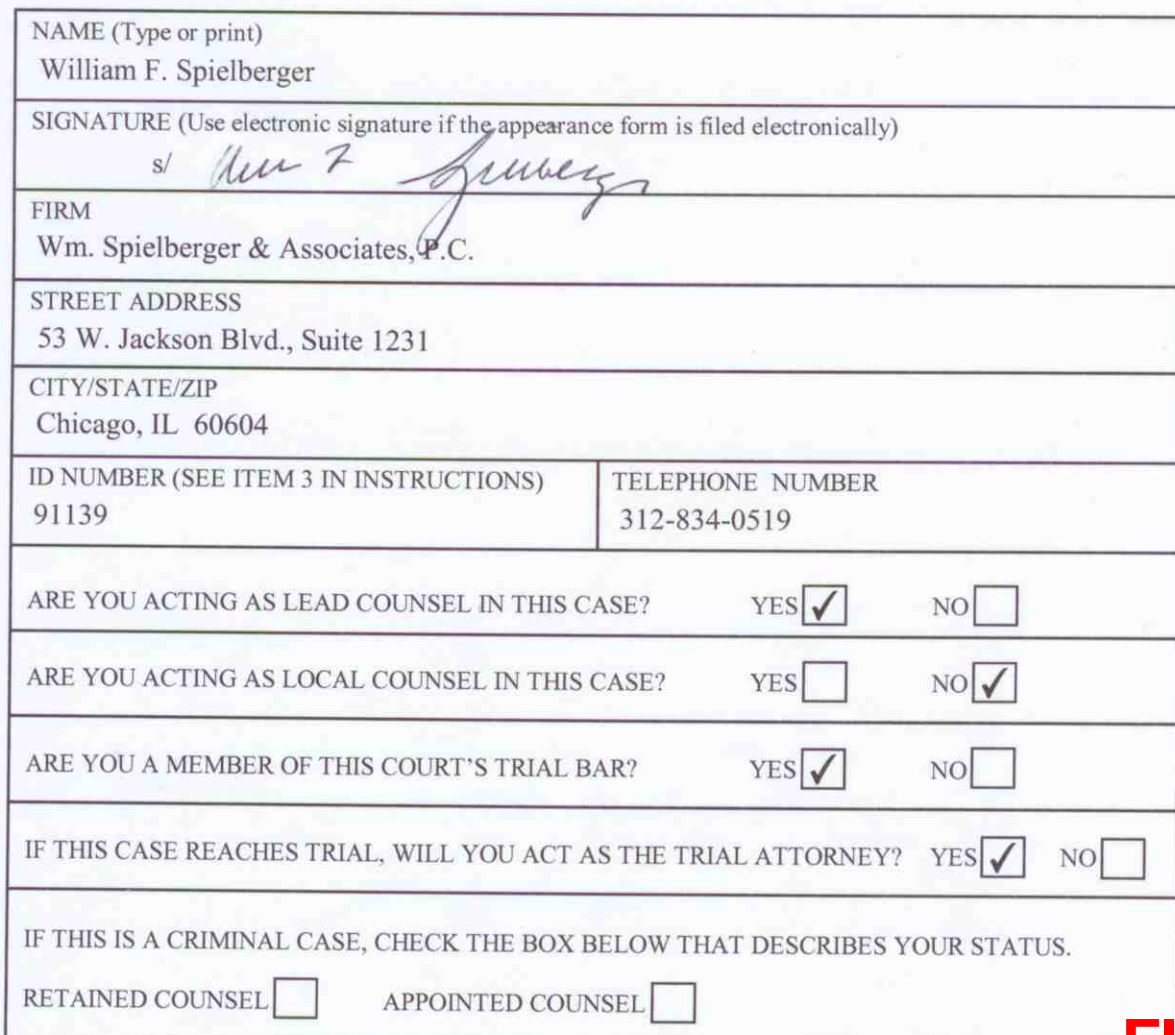 NAME (Type or print)
William F. Spielberger
SIGNATURE (Use electronic signature if the appearance form is filed electronically)
s/
FIRM
Wm. Spielberger & Associates, P.C.
STREET ADDRESS
53 W. Jackson Blvd., Suite 1231
CITY/STATE/ZIP
Chicago, IL 60604
ID NUMBER (SEE ITEM 3 IN INSTRUCTIONS) TELEPHONE NUMBER
91139 312-834-0519
ARE YOU ACTING AS LEAD COUNSEL IN THIS CASE? YES ✓ NO
ARE YOU ACTING AS LOCAL COUNSEL IN THIS CASE? YES NO ✓
ARE YOU A MEMBER OF THIS COURT'S TRIAL BAR? YES ✓ NO
IF THIS CASE REACHES TRIAL, WILL YOU ACT AS THE TRIAL ATTORNEY? YES ✓ NO
IF THIS IS A CRIMINAL CASE, CHECK THE BOX BELOW THAT DESCRIBES YOUR STATUS.
RETAINED COUNSEL APPOINTED COUNSEL